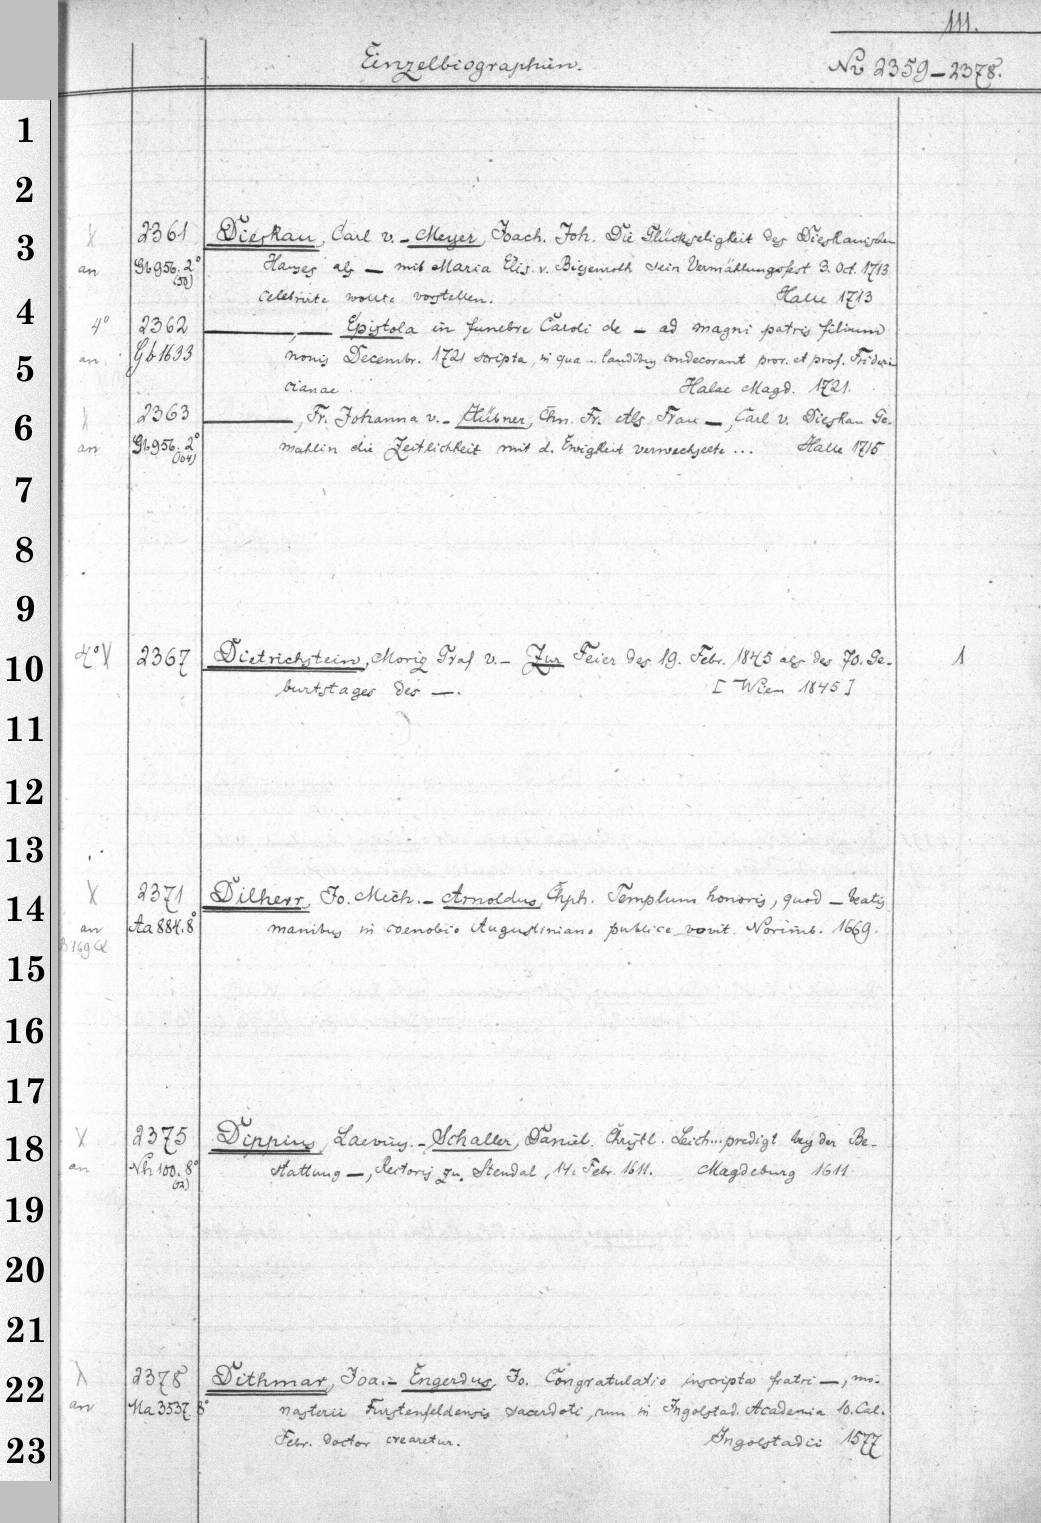 111.
Einzelbiographien.
No 2359-2378.
1
2
3
X 2361 Dieskau, Carl v. - Meyer, Joach. Joh. Die Glückseligkeit des Dieskauischen
an Gb 956. 2° Hauses als — mit Maria Elis. v. sein Vermählungsfest 3. Oct. 1713
(50) celebrirte wollte vorstellen. Halle 1713
4
4° 2362 ———, — Epistola in funebre Caroli de — ad magni patris filium
5
an Gb 1633 nonis Decembr. 1721 scripta, in qua .. laudibus condecorant pror. et prof. Frideri-
cianae Halae Magd. 1721.
6
X 2363 ———, Fr. Johanna v. - Hübner, Chn. Fr. Als Frau —, Carl v. Dieskau Ge-
an Gb 956. 2° mahlin die Zeitlichkeit mit d. Ewigkeit verwechselte ... Halle 1715
(104)
7
8
9
10
4° X 2367 Dietrichstein, Moriz Graf v. - Zur Feier des 19. Febr. 1845 als des 70. Ge- 1
burtstages des —. [Wien 1845]
11
12
13
14
X 2371 Dilherr, Jo. Mich. - Arnoldus, Chph. Templum honoris, quod — beatis
an Aa 884. 8° manibus in coenobio Augustiniano publice vovit. Norimb. 1669.
15
16
17
18
X 2375 Dippius, Laevinus. - Schaller, Daniel. Christl. Leich...predigt bey der Be-
an Nh 100. 8° stattung —, Rectoris zu Stendal, 14. Febr. 1611. Magdeburg 1611
(12)
19
20
21
22
X 2378 Dithmar, Joa. - Engerdus, Jo. Congratulatio inscripta fratri —, mo-
an Ma 3537 8° nasterii Furstenfeldensis sacerdoti, cum in Ingolstad. Academia 10. Cal.
23
Febr. doctor crearetur. Ingolstadii 1577